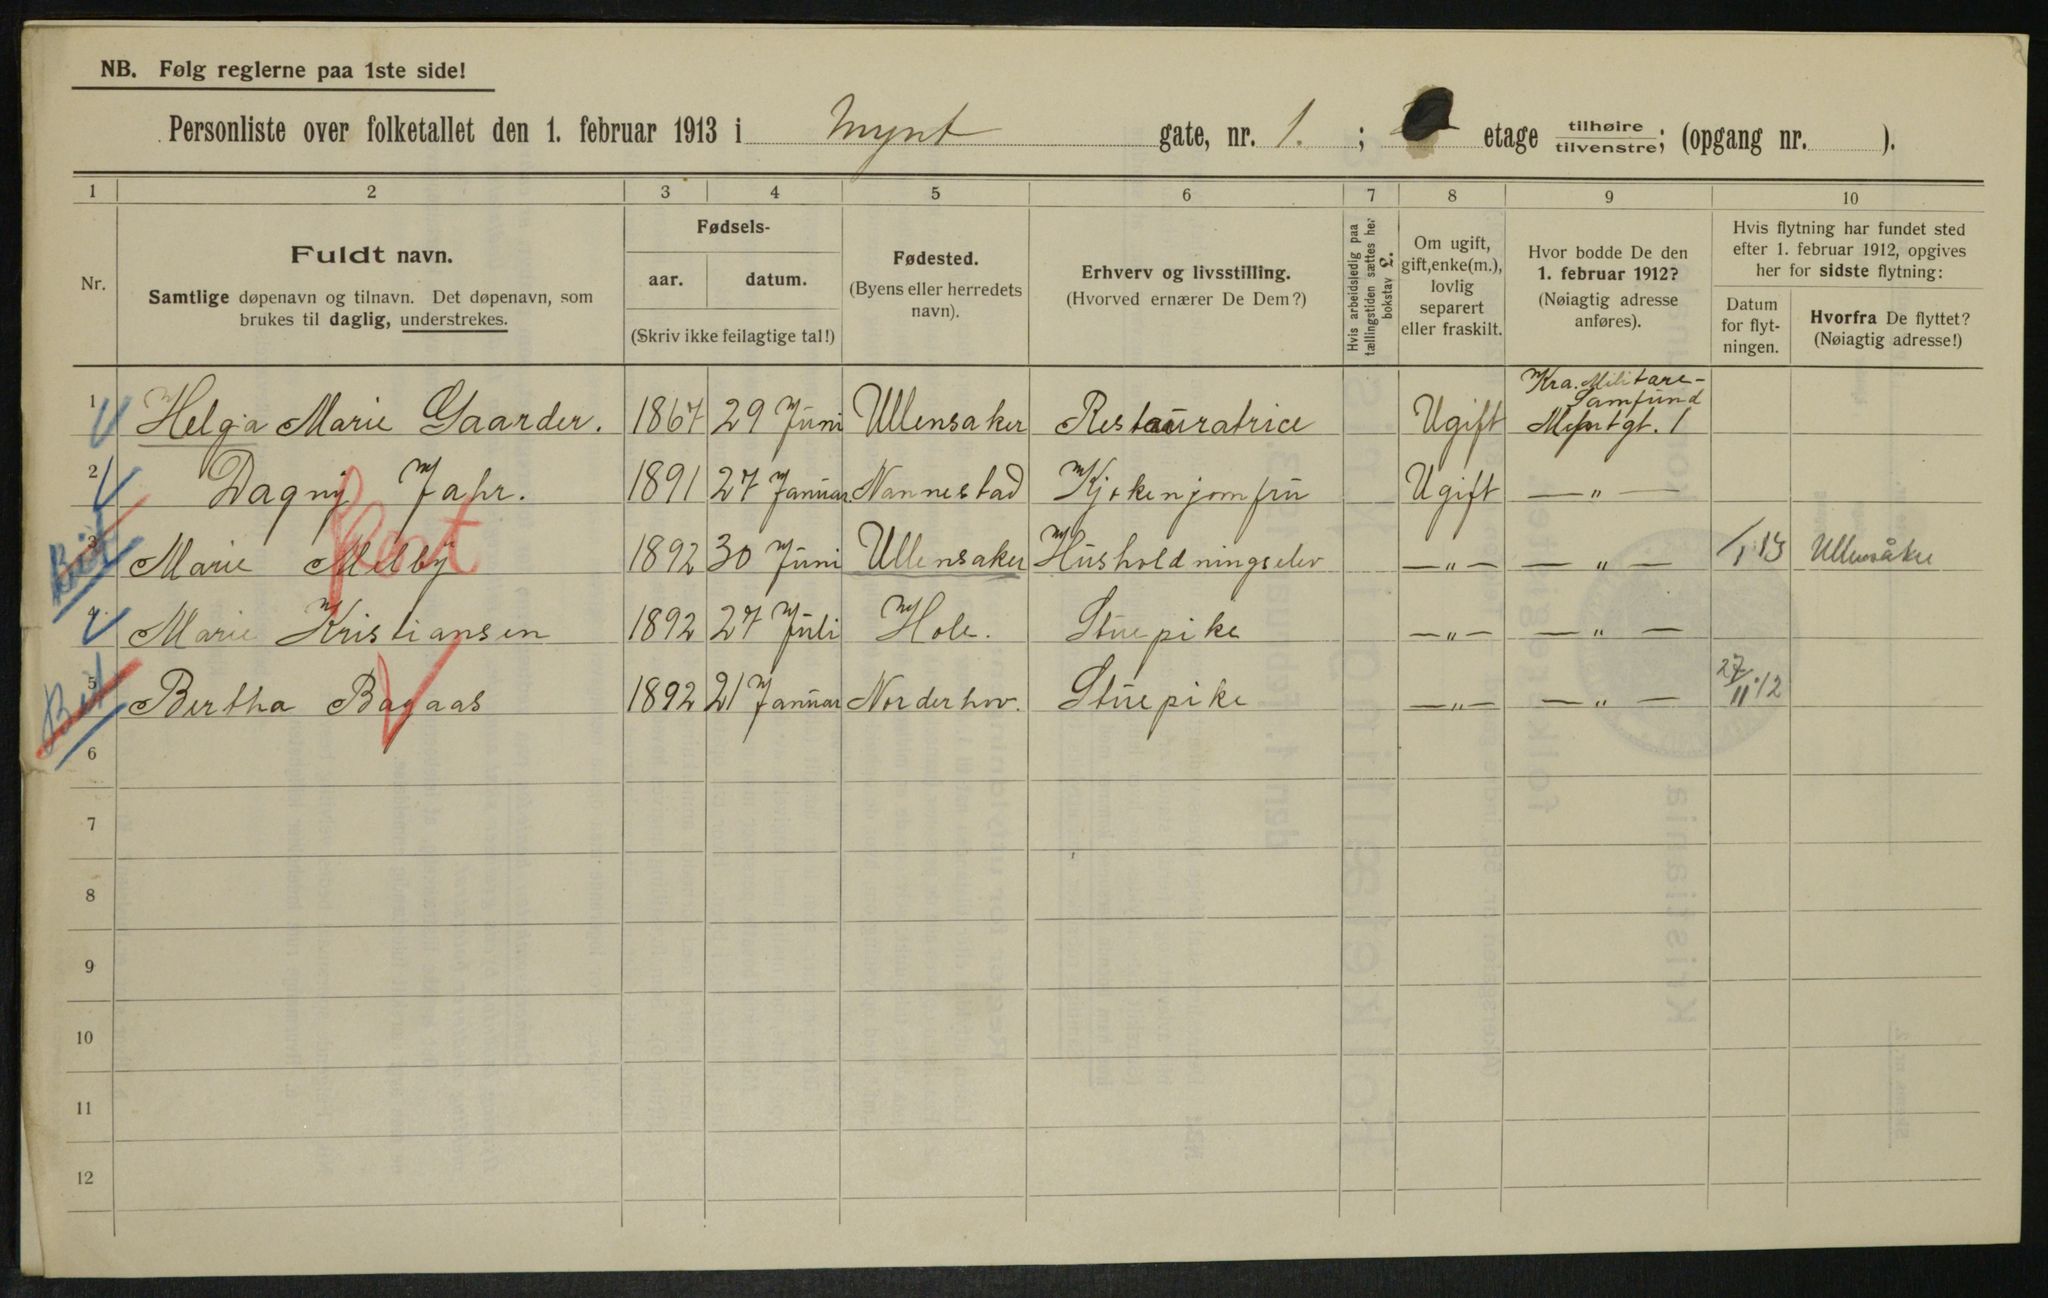 NB. Følg reglerne paa 1ste side!
Personliste over folketallet den 1. februar 1913 i Mynt gate, nr. 1. ; etage tilhøire tilvenstre; (opgang nr. ).
1 2 3 4 5 6 7 8 9 10
Nr.
Fuldt navn.
Samtlige døpenavn og tilnavn. Det døpenavn, som
brukes til daglig, understrekes.
Fødsels-
aar. datum.
(Skriv ikke feilagtige tal!)
Fødested.
(Byens eller herredets
navn).
Erhverv og livsstilling.
(Hvorved ernærer De Dem?)
Hvis arbeidsledig paa
tællingstiden sættes her
bokstav L.
Om ugift,
gift, enke(m.),
lovlig
separert
eller fraskilt.
Hvor bodde De den
1. februar 1912?
(Nøiagtig adresse
anføres).
Hvis flytning har fundet sted
efter 1. februar 1912, opgives
her for sidste flytning:
Datum
for flyt-
ningen.
Hvorfra De flyttet?
(Nøiagtig adresse!)
Kra. Militære-
Samfund
1 Helga Marie Gaarder. 1867 29 Juni Ullensaker Restauratrice Ugift Myntgt. 1
2 Dagny Jahr. 1891 27 Januar Nannestad Kjøkenjomfru Ugift — " —
3 Marie Melby 1892 30 Juni Ullensaker Husholdningselev — " — — " — 1/1 13 Ullensåker
4 Marie Kristiansen 1892 27 Juli Hole. Stuepike — " — — " —
5 Bertha Bagaas 1892 21 Januar Norderhov. Stuepike — " — — " — 27/11.12
6
7
8
9
10
11
12